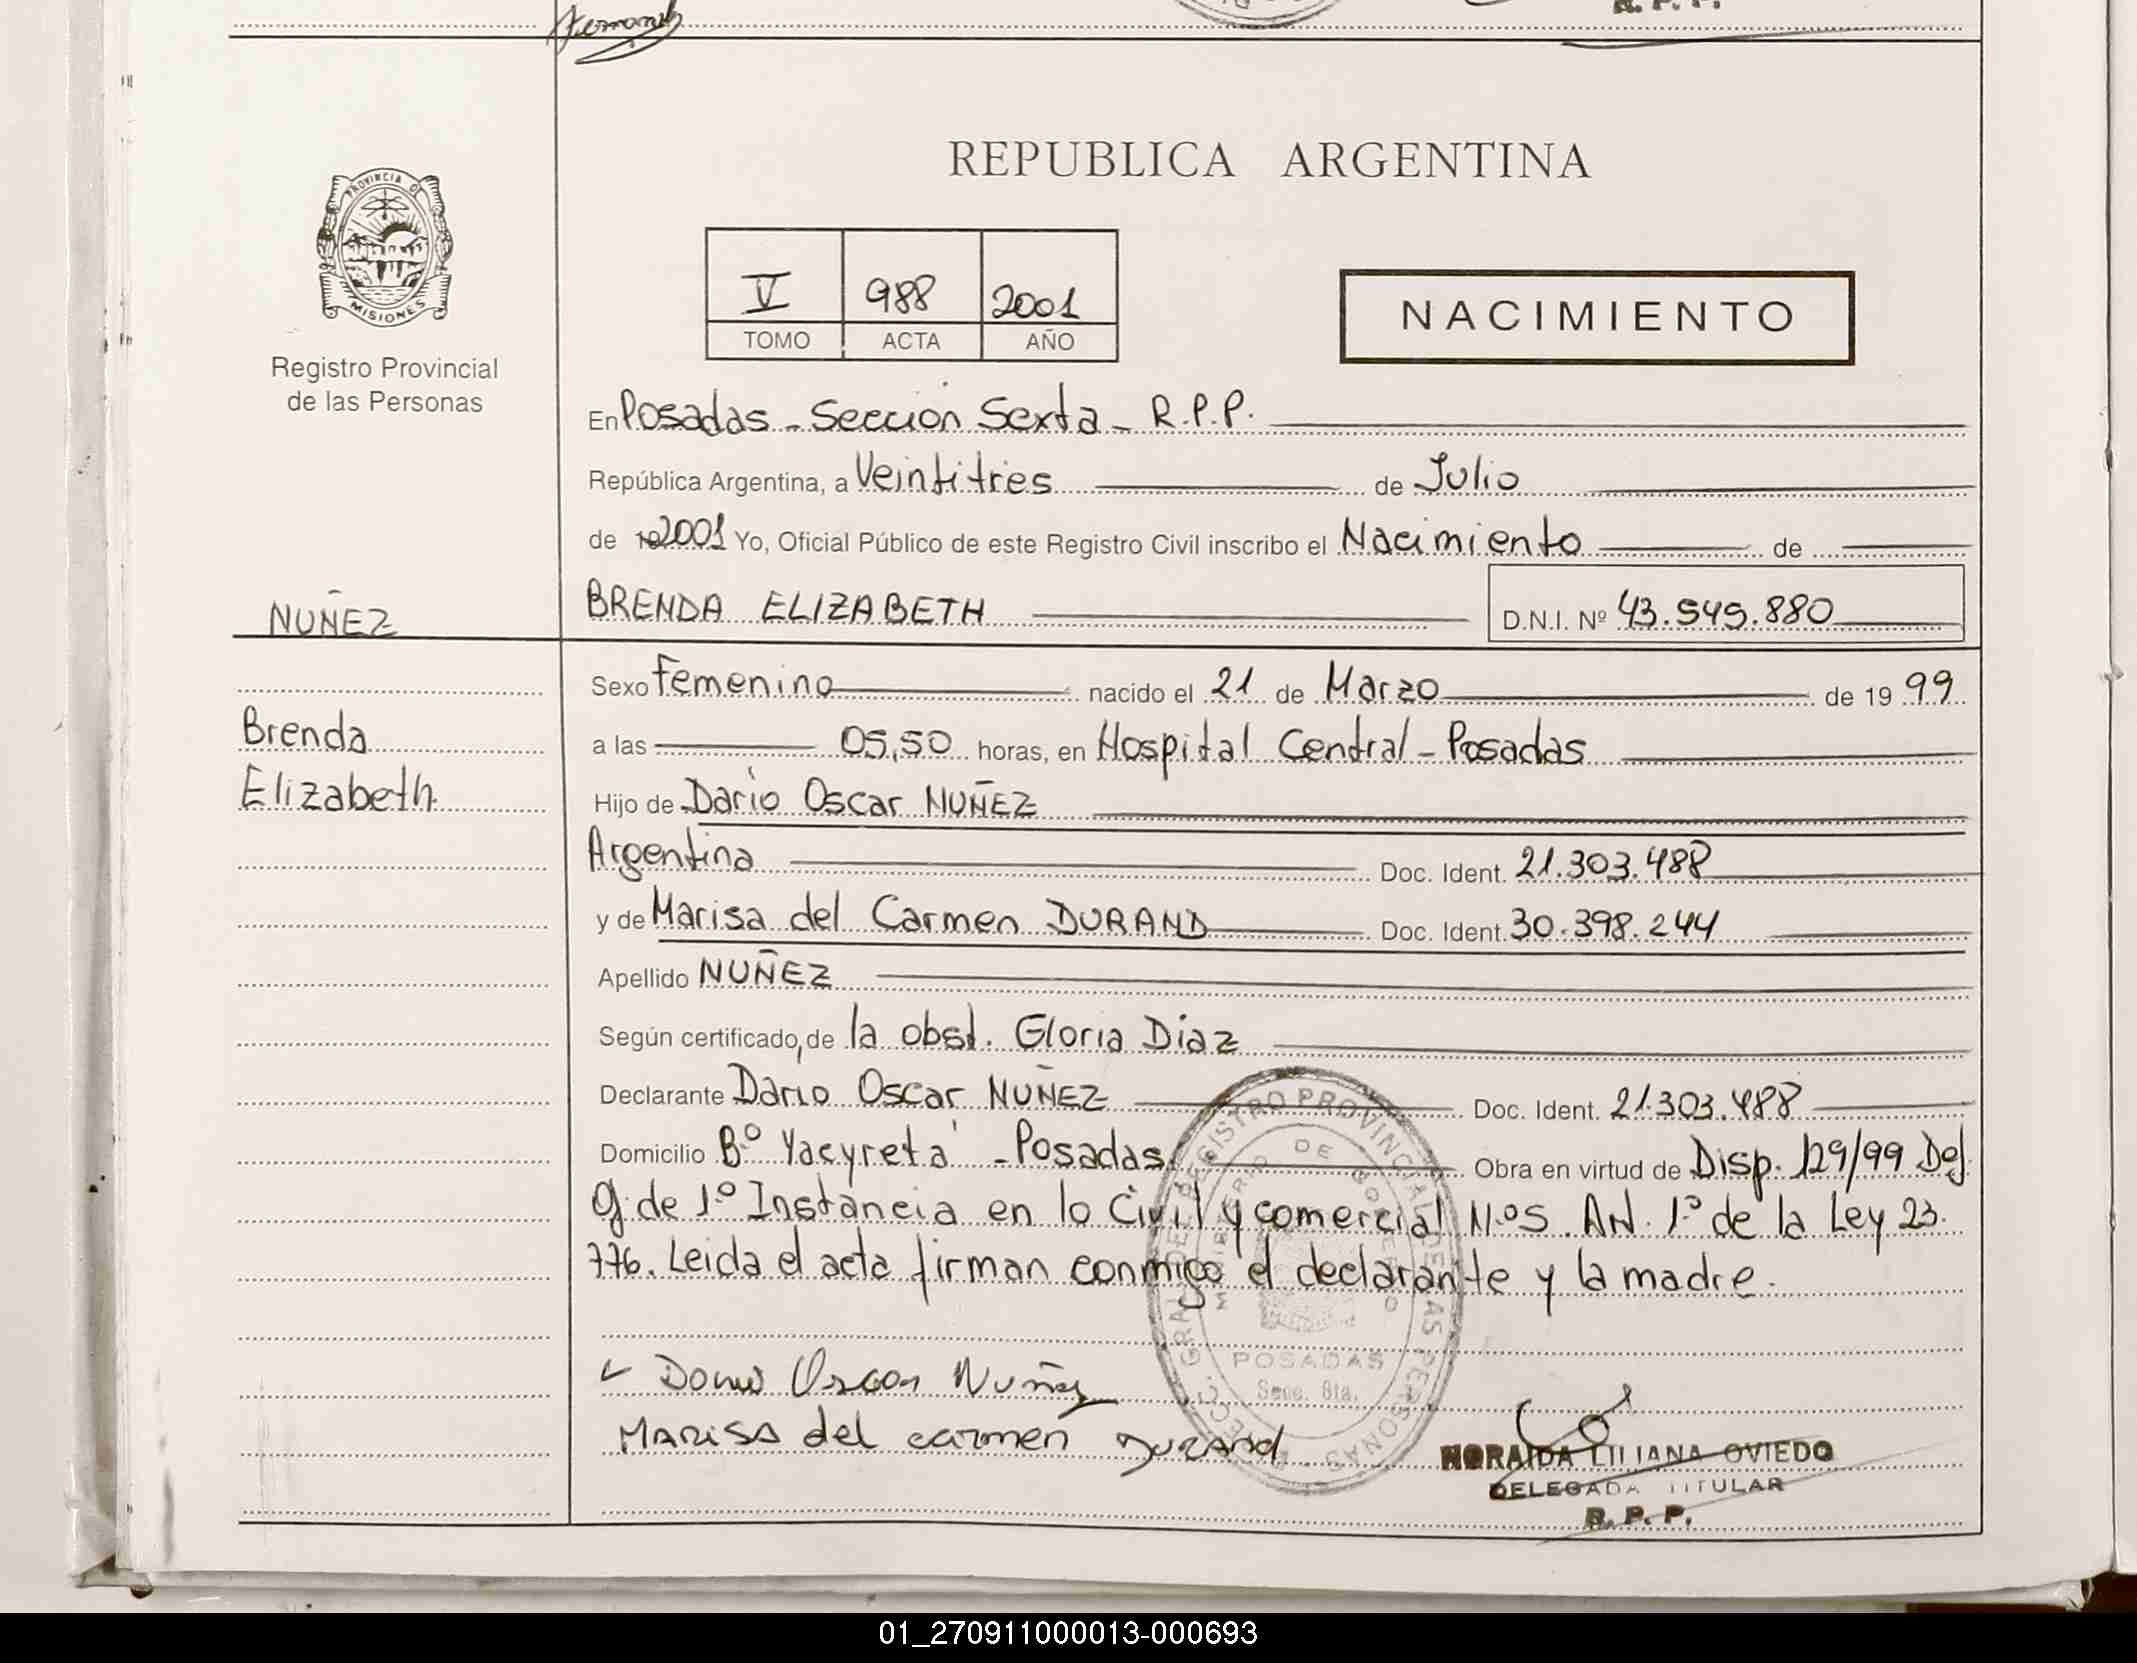 R. P. P.
PROVINCIA DE
MISIONES
Registro Provincial
de las Personas
REPUBLICA ARGENTINA
V 988 2001
TOMO ACTA AÑO
NACIMIENTO
En Posadas - Sección Sexta - R.P.P.
República Argentina, a Veintitres de Julio
de 2001 Yo, Oficial Público de este Registro Civil inscribo el Nacimiento de
NUÑEZ
BRENDA ELIZABETH D.N.I. Nº 43.545.880
Sexo Femenino nacido el 21 de Marzo de 1999
Brenda
Elizabeth
a las 05,50 horas, en Hospital Central - Posadas
Hijo de Dario Oscar NUÑEZ
Argentina Doc. Ident. 21.303.488
y de Marisa del Carmen DURAND Doc. Ident. 30.398.244
Apellido NUÑEZ
Según certificado, de la obst. Gloria Diaz
Declarante Dario Oscar NUÑEZ Doc. Ident. 21.303.488
Domicilio Bº Yacyretá - Posadas Obra en virtud de Disp. 129/99
de 1º Instancia en lo Civil y comercial Nº5. 1º de la Ley 23.
776. Leida el acta firman conmigo el declarante y la madre.
REGISTRO PROVINCIAL DE LAS PERSONAS
MINISTERIO DE GOBIERNO
POSADAS
Secc. 6ta.
Dario Oscar Nuñez
MARISA del carmen DURAND
NORAIDA LILIANA OVIEDO
DELEGADA TITULAR
R. P. P.
01_270911000013-000693